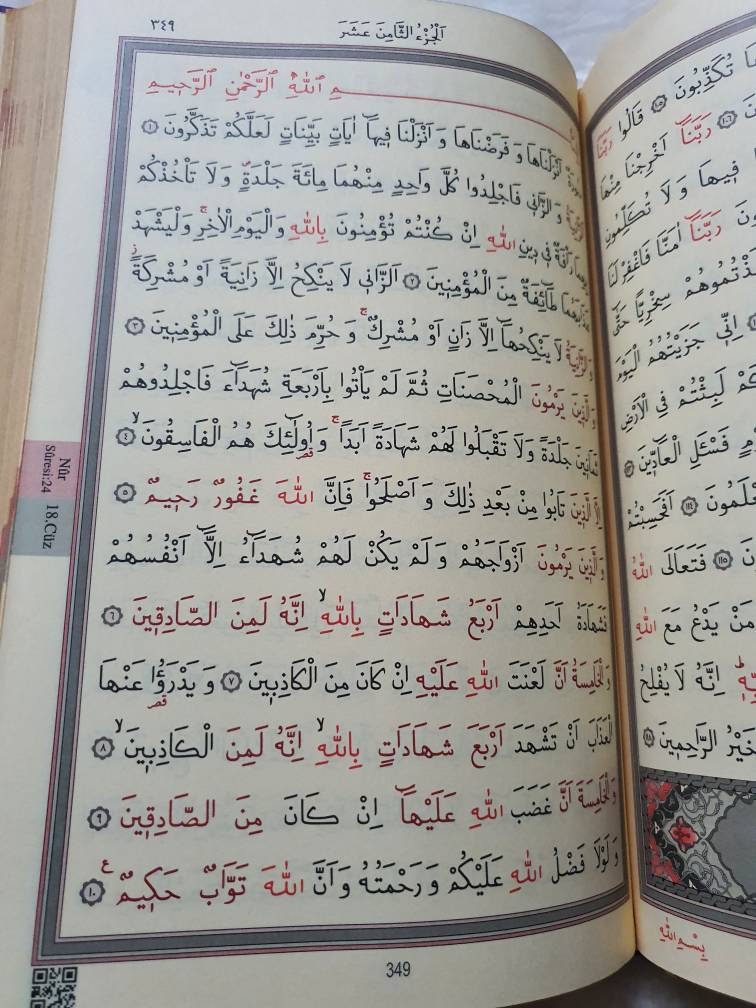 اَلْجُزْءُ الثَّامِنَ عَشَرَ
٣٤٩
اللّٰهِ الرَّحْمٰنِ الرَّحٖيمِ
اَنْزَلْنَاهَا وَفَرَضْنَاهَا وَاَنْزَلْنَا فٖيهَٓا اٰيَاتٍ بَيِّنَاتٍ لَعَلَّكُمْ تَذَكَّرُونَ ﴿١﴾
وَالزَّانٖى فَاجْلِدُوا كُلَّ وَاحِدٍ مِنْهُمَا مِائَةَ جَلْدَةٍ وَلَا تَأْخُذْكُمْ
بِهِمَا رَأْفَةٌ فٖى دٖينِ اللّٰهِ اِنْ كُنْتُمْ تُؤْمِنُونَ بِاللّٰهِ وَالْيَوْمِ الْاٰخِرِۚ وَلْيَشْهَدْ
عَذَابَهُمَا طَٓائِفَةٌ مِنَ الْمُؤْمِنٖينَ ﴿٢﴾ اَلزَّانٖى لَا يَنْكِحُ اِلَّا زَانِيَةً اَوْ مُشْرِكَةًؗ
وَالزَّانِيَةُ لَا يَنْكِحُهَٓا اِلَّا زَانٍ اَوْ مُشْرِكٌۚ وَحُرِّمَ ذٰلِكَ عَلَى الْمُؤْمِنٖينَ ﴿٣﴾
وَالَّذٖينَ يَرْمُونَ الْمُحْصَنَاتِ ثُمَّ لَمْ يَأْتُوا بِاَرْبَعَةِ شُهَدَٓاءَ فَاجْلِدُوهُمْ
ثَمَانٖينَ جَلْدَةً وَلَا تَقْبَلُوا لَهُمْ شَهَادَةً اَبَدًاۚ وَاُو۬لٰٓئِكَ هُمُ الْفَاسِقُونَۙ ﴿٤﴾
اِلَّا الَّذٖينَ تَابُوا مِنْ بَعْدِ ذٰلِكَ وَاَصْلَحُواۚ فَاِنَّ اللّٰهَ غَفُورٌ رَحٖيمٌ ﴿٥﴾
وَالَّذٖينَ يَرْمُونَ اَزْوَاجَهُمْ وَلَمْ يَكُنْ لَهُمْ شُهَدَٓاءُ اِلَّٓا اَنْفُسُهُمْ
فَشَهَادَةُ اَحَدِهِمْ اَرْبَعُ شَهَادَاتٍ بِاللّٰهِۙ اِنَّهُ لَمِنَ الصَّادِقٖينَ ﴿٦﴾
وَالْخَامِسَةُ اَنَّ لَعْنَتَ اللّٰهِ عَلَيْهِ اِنْ كَانَ مِنَ الْكَاذِبٖينَ ﴿٧﴾ وَيَدْرَؤُ۬ا عَنْهَا
الْعَذَابَ اَنْ تَشْهَدَ اَرْبَعَ شَهَادَاتٍ بِاللّٰهِۙ اِنَّهُ لَمِنَ الْكَاذِبٖينَۙ ﴿٨﴾
وَالْخَامِسَةَ اَنَّ غَضَبَ اللّٰهِ عَلَيْهَٓا اِنْ كَانَ مِنَ الصَّادِقٖينَ ﴿٩﴾
وَلَوْلَا فَضْلُ اللّٰهِ عَلَيْكُمْ وَرَحْمَتُهُ وَاَنَّ اللّٰهَ تَوَّابٌ حَكٖيمٌ ﴿١٠﴾
349
Nûr
Sûresi:24 18.Cüz
تُكَذِّبُونَ ﴿١٠٥﴾ قَالُوا رَبَّنَا
﴿١٠٦﴾ رَبَّنَٓا اَخْرِجْنَا مِنْهَا
فٖيهَا وَلَا تُكَلِّمُونِ
رَبَّنَٓا اٰمَنَّا فَاغْفِرْ لَنَا
سِخْرِيًّا حَتّٰٓى
اِنّٖى جَزَيْتُهُمُ الْيَوْمَ
لَبِثْتُمْ فِى الْاَرْضِ
فَسْـَٔلِ الْعَٓادّٖينَ
اَفَحَسِبْتُمْ
﴿١١٥﴾ فَتَعَالَى اللّٰهُ
مَنْ يَدْعُ مَعَ اللّٰهِ
اِنَّهُ لَا يُفْلِحُ
خَيْرُ الرَّاحِمٖينَ ﴿١١٨﴾
بِسْمِ اللّٰهِ